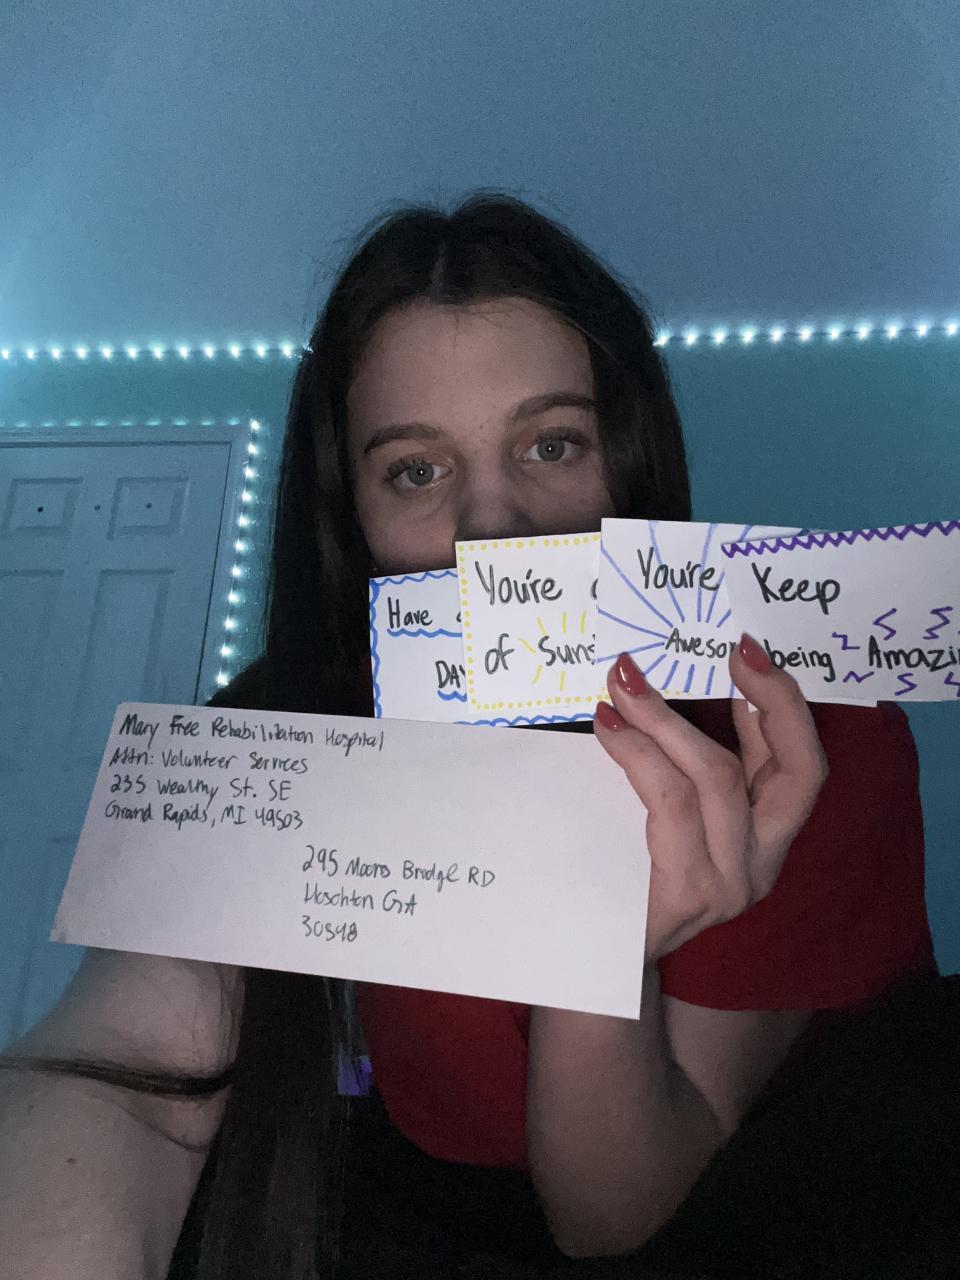 Have
DAY
You're
of Suns
You're
Awesom
Keep
being Amazin
Mary Free Rehabilitation Hospital
Attn: Volunteer Services
235 Wealthy St. SE
Grand Rapids, MI 49503
295 Moons Bridge RD
Hoschton GA
30548